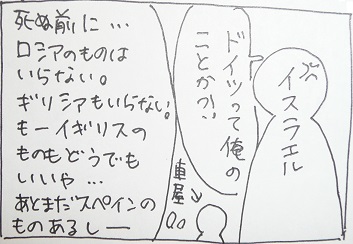 イスラエル
ドイツって俺の
ことかっ!?
車屋→
死ぬ前に…
ロシアのものは
いらない。
ギリシアもいらない!
もーイギリスの
ものもどうでも
いいや…
あとまだスペインの
ものあるしー